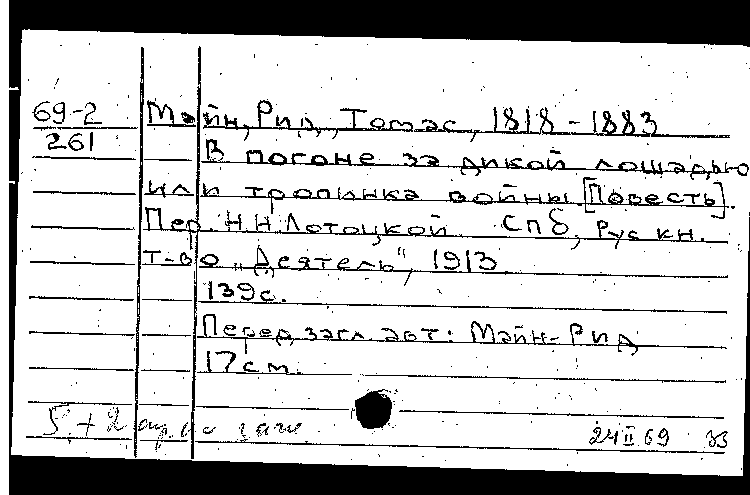 69-2 Майн, Рид, Томас, 1818-1883
261
В погоне за дикой лошадью
или тропинка войны [Повесть].
Пер. Н.Н. Лотоцкой. Спб, Рус кн.
т-во „Деятель“, 1913
139с.
Перед загл. авт: Майн-Рид
17см.
5 + 2
24 II 69